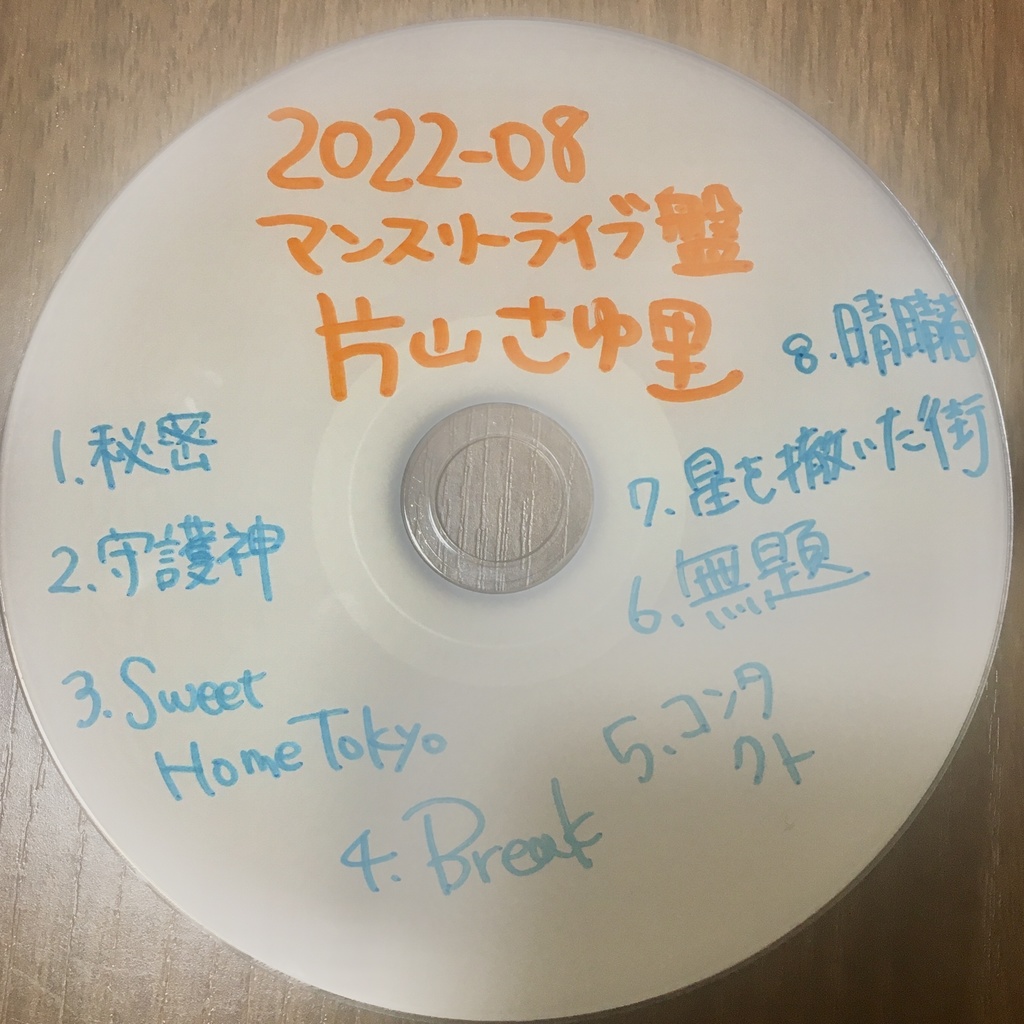 2022-08
マンスリーライブ盤
片山さゆ里
1.秘密
2.守護神
3.Sweet
Home Tokyo
4.Break
5.コンタ
クト
6.無題
7.星を撒いた街
8.